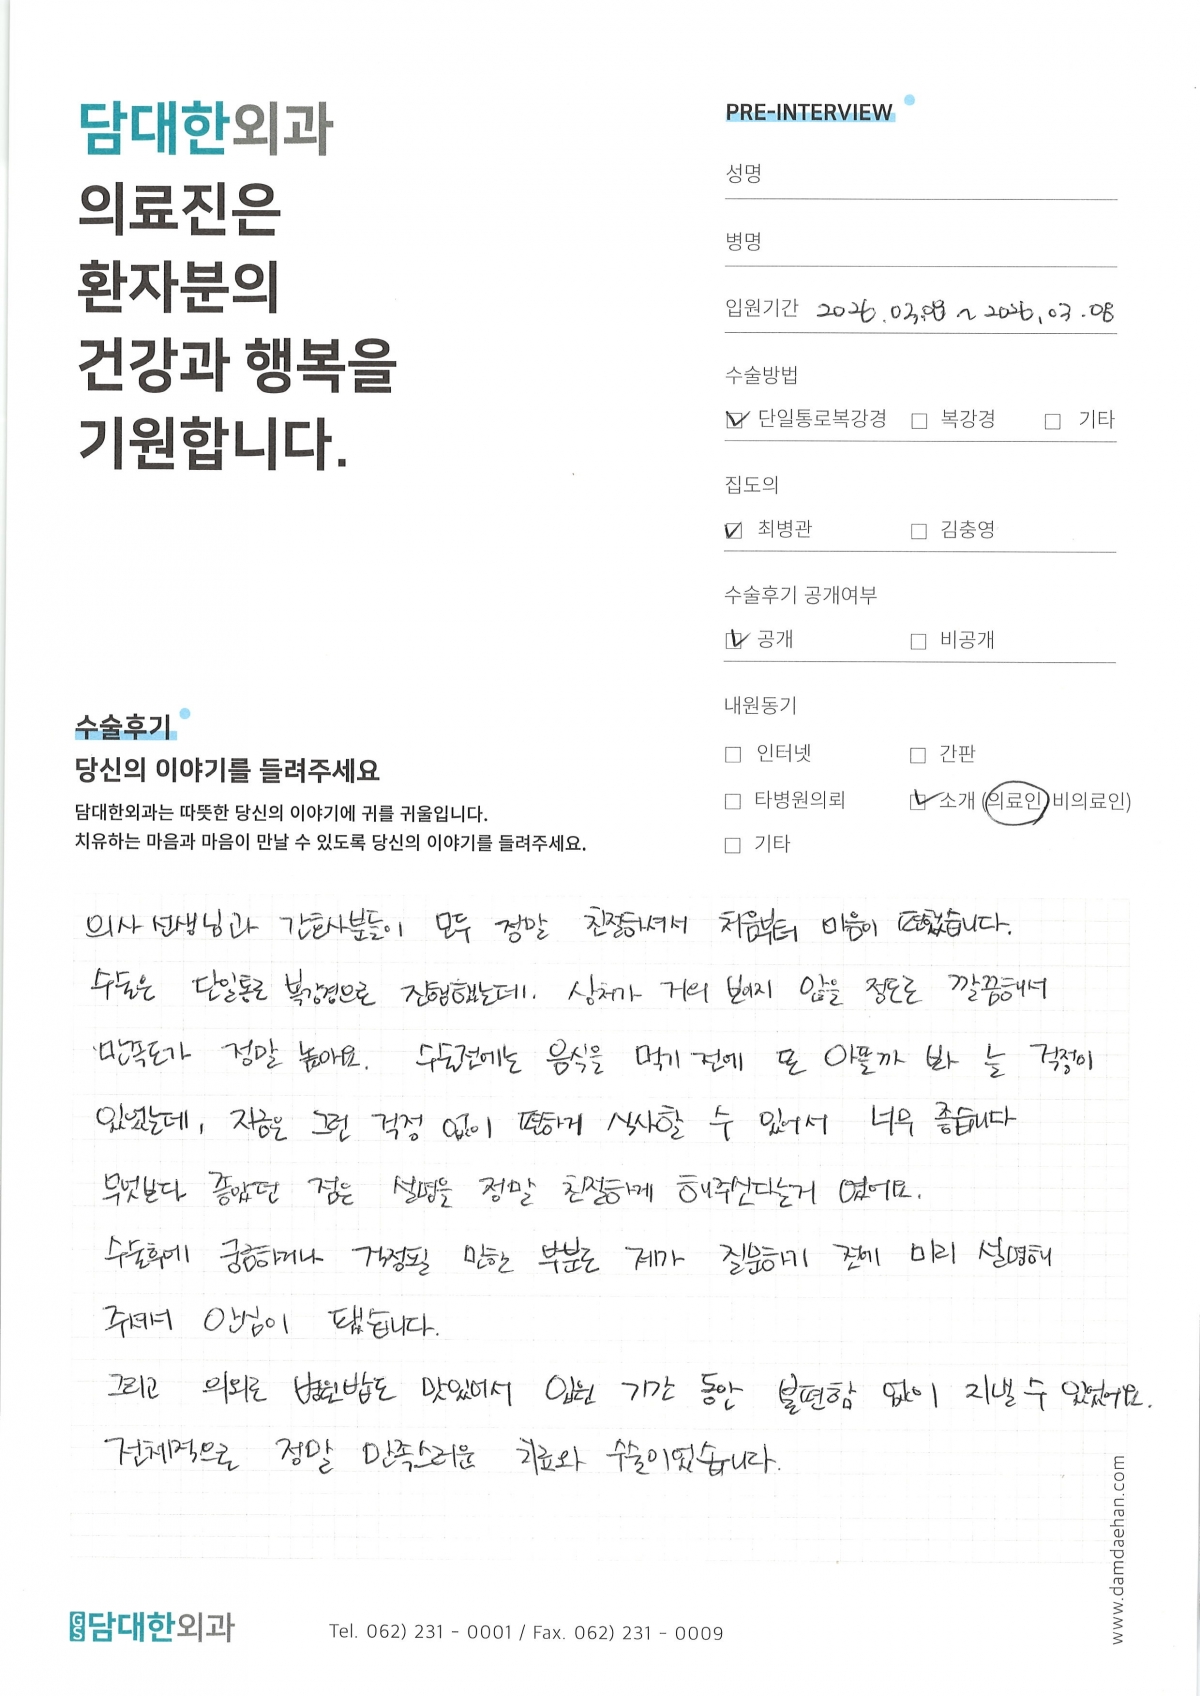 담대한외과
의료진은
환자분의
건강과 행복을
기원합니다.
PRE-INTERVIEW
성명
병명
입원기간 2026.03.08 ~ 2026.03.08
수술방법
단일통로복강경 복강경 기타
집도의
최병관 김충영
수술후기 공개여부
공개 비공개
내원동기
인터넷 간판
타병원의뢰 소개 (의료인 비의료인)
기타
수술후기
당신의 이야기를 들려주세요
담대한외과는 따뜻한 당신의 이야기에 귀를 귀울입니다.
치유하는 마음과 마음이 만날 수 있도록 당신의 이야기를 들려주세요.
의사 선생님과 간호사분들이 모두 정말 친절하셔서 처음부터 마음이 편했습니다.
수술은 단일통로 복강경으로 진행했는데. 상처가 거의 보이지 않을 정도로 깔끔해서
만족도가 정말 높아요. 수술전에는 음식을 먹기 전에 또 아플까 봐 늘 걱정이
있었는데, 지금은 그런 걱정 없이 편하게 식사할 수 있어서 너무 좋습니다
무엇보다 좋았던 점은 설명을 정말 친절하게 해주신다는거 였어요.
수술후에 궁금하거나 걱정될 만한 부분도 제가 질문하기 전에 미리 설명해
주셔서 안심이 됐습니다.
그리고 의외로 병원밥도 맛있어서 입원 기간 동안 불편함 없이 지낼 수 있었어요.
전체적으로 정말 만족스러운 치료와 수술이었습니다.
GS 담대한외과
Tel. 062) 231 - 0001 / Fax. 062) 231 - 0009
www.damdaehan.com